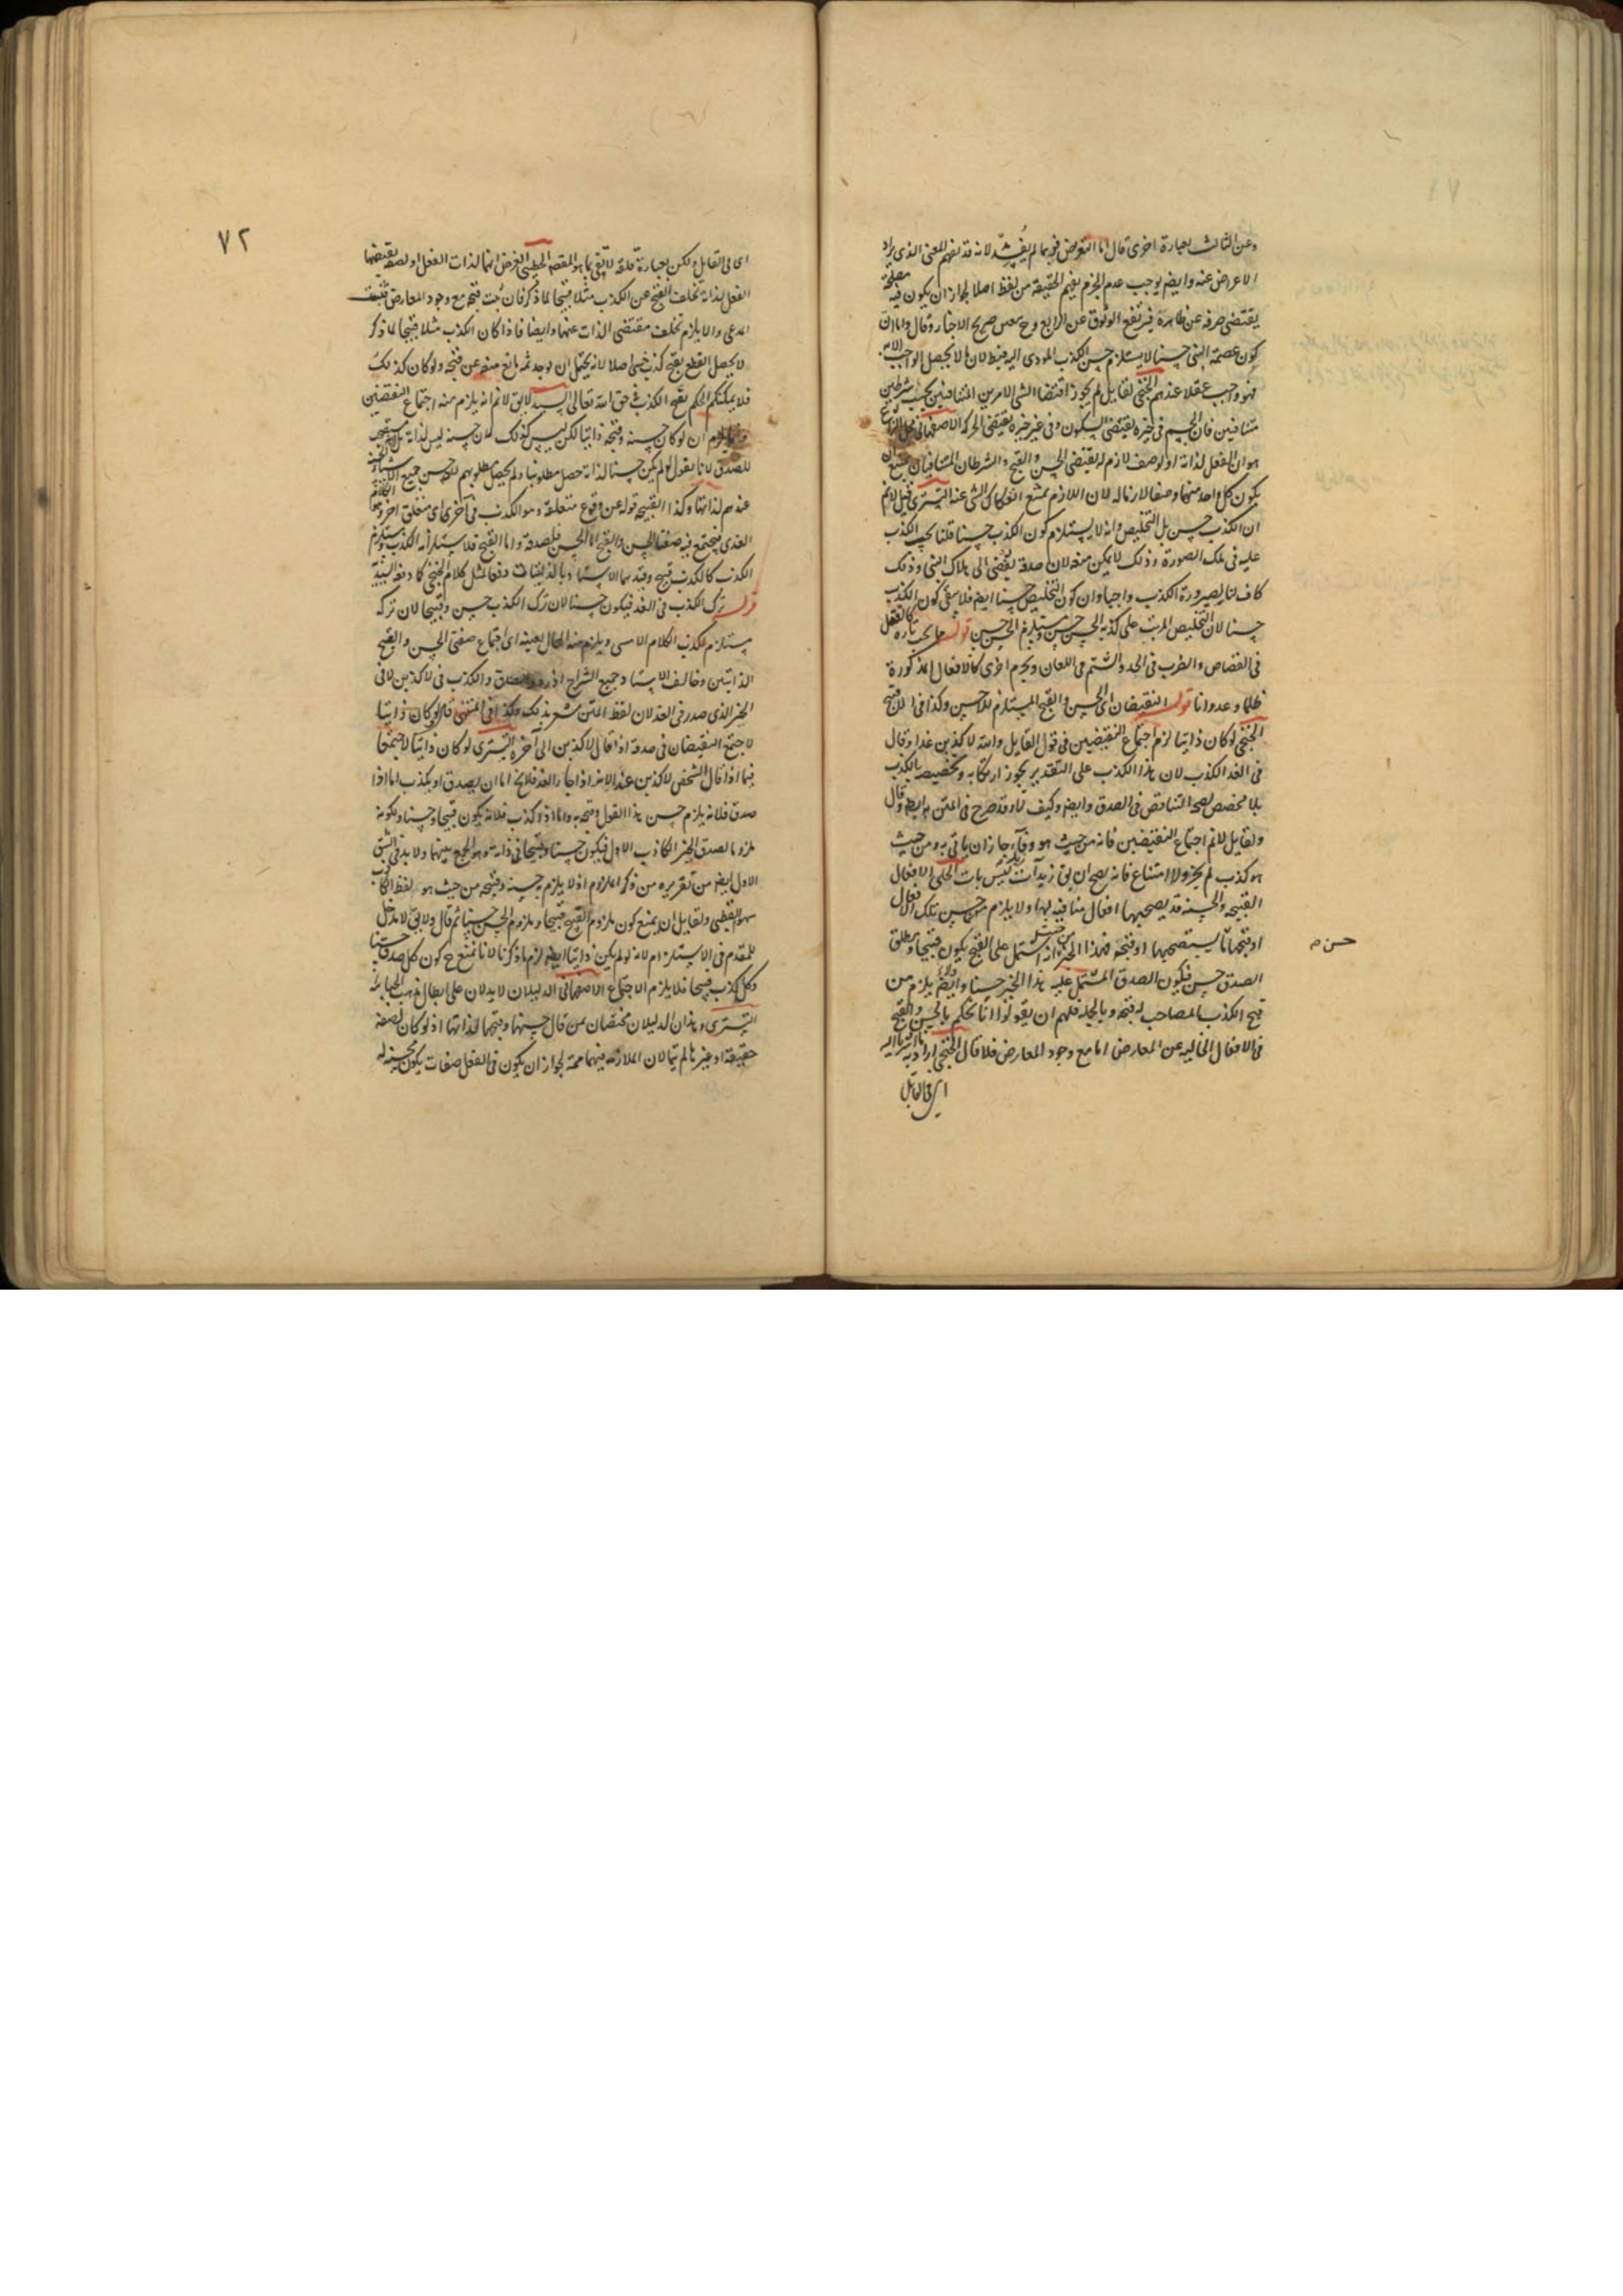 وعن الثالث بعبارة اخرى قال اما التعريض فربما لم يفد لانه قد يفهم المعنى الذى يراد
الاعراض عنه وايضا يوجب عدم الجزم بفهم الحقيقة من لفظ اصلا لجواز ان يكون فيه مصلحة
يقتضى صرفه عن ظاهره فيرتفع الوثوق عن صريح الاخبار وقال واما ان
كون عصمة النبى حسنا لا يستلزم حسن الكذب المودى اليه فيبطل لان ما لا يحصل الواجب الا به
فهو واجب عقلا عندهم الخنجى لقايل لم يجوز اقتضا الشى الامرين المتنافيين بحسب شرطين
متنافين فان الجسم فى حيزه يقتضى السكون وفى غير حيزه يقتضى الحركة الاصفهانى محل النزاع
هو ان الفعل لذاته او لوصف لازم له يقتضى الحسن والقبح والشرطان المتنافيان يمتنع ان
يكون كل واحد منهما وصفا لازما له لان اللازم يمتنع انفكاك الشى عنه التسترى قيل لا نم
ان الكذب حسن بل التخليص وانه لا يستلزم كون الكذب حسنا قلنا يجب الكذب
عليه فى تلك الصورة وذلك لا يمكن منعه لان صدقه يفضى الى هلاك النبى وذلك
كاف لنا لصيرورة الكذب واجبا وان كون التخليص حسنا ايضا فلا ينفى كون الكذب
حسنا لان التخليص المرتب على كذبه الحسن حسن ومستلزم الحسن حسن قوله مما يجب تارة كالقتل
فى القصاص والضرب فى الحد والشتم فى اللعان ويحرم اخرى كالافعال المذكورة
ظلما وعدوانا قوله النقيضان اى الحسن والقبح المستلزم للاحسن وكذا فى القبح
الخنجى لو كان ذاتيا لزم اجتماع النقيضين فى قول القايل والله لاكذبن غدا وقال
فى الغد الكذب لان هذا الكذب على التقدير يجوز ارتكابه وتخصيصه بالكذب
بلا مخصص لصحة التناقض فى الصدق وايضا وكيف لا وقد صرح فى المتن به ايضا وقال
ولقايل لا نم اجتماع النقيضين فانه من حيث هو وفاء جاز ان ياتى به ومن حيث
هو كذب لم يجز ولا امتناع فانه يصح ان يق زيد آت ليس بات الحلى الافعال
القبيحة والحسنة قد يصحبها افعال منافية لها ولا يلزم من حسن تلك الافعال
او قبحها ما يستصحبها او قبحه فهذا الخبر من حيث انه اشتمل على القبح يكون قبيحا ومطلق
حسن م
الصدق حسن فيكون الصدق المشتمل عليه هذا الخبر حسنا وايضا يلزم من
قبح الكذب المصاحب له قبحه وبالجملة فلهم ان يقولوا انا نحكم بالحسن والقبح
فى الافعال الخالية عن المعارض اما مع وجود المعارض فلا قال الخنجى
اى فى القابل
٧٢
اى فى القابل ولكن بعبارة قلقة لا تفى بما هو المقصود الخطيبى الغرض انها لذات الفعل او لصفة يقتضيها
الفعل لذاته تخلف القبح عن الكذب مثلا قبيحا لما ذكر فان ثبت قبحه مع وجود المعارض ثبت
المدعى والا يلزم تخلف مقتضى الذات عنها وايضا فاذا كان الكذب مثلا قبيحا لما ذكر
لا يحصل القطع بقبح كذب شى اصلا لانه يحتمل ان يوجد ثمه مانع منعه عن قبحه ولو كان كذلك
فلا يمكنكم الحكم بقبح الكذب فى حق الله تعالى السيد لا يق لا نم انه يلزم منه اجتماع النقيضين
وانما يلزم ان لو كان حسنه وقبحه ذاتيا لكن ليس كذلك لان حسنه ليس لذاته بل
للصدق لانا نقول لو لم يكن حسنا لذاته حصل مطلوبنا ولم يحصل مطلوبهم لكون حسن جميع الاشيا
عندهم لذاتها وكذا القبيحة قوله عن وقوع متعلقه وهو الكذب فى آخرى اى متعلق اخر وهو الكلام
الغدى فيجتمع فيه صفتا الحسن والقبح اما الحسن فلصدقه واما القبح فلاستلزامه الكذب ومستلزم
الكذب كالكذب قبيح وقيد بهما الاستاد بالذاتيات دفعا لمثل كلام الخنجى كما دفعه السيد
قوله ترك الكذب فى الغد فيكون حسنا لان ترك الكذب حسن وقبيحا لان تركه
مستلزم لكذب الكلام الامسى ويلزم منه المحال بعينه اى اجتماع صفتى الحسن والقبح
الذاتيتين وخالف الاستاد جميع الشراح اذ الصدق والكذب فى لاكذبن لا فى
الخبر الذى صدر فى الغد لان لفظ المتن مشعر بذلك وكذا فى المنتهى قال لو كان ذاتيا
لاجتمع النقيضان فى صدق اذا قال لاكذبن الى آخره التسترى لو كان ذاتيا لاجتمعا
فيما اذا قال الشخص لاكذبن غدا لانه اذا جاء الغد فلايخ اما ان يصدق او يكذب اما اذا
صدق فلانه يلزم حسن هذا القول وقبحه واما اذا كذب فلانه يكون قبيحا وحسنا ويكونه
ملزوما لصدق الخبر الكاذب الاول فيكون حسنا وقبيحا فى ذاته وهو الجمع بينهما ولا بد فى الشق
الاول ايضا من تقريره من ذكر الملزوم اذ لا يلزم حسنه وقبحه من حيث هو لفظ الكاذب
سهو القطبى ولقايل ان يمنع كون ملزوم القبيح قبيحا وملزوم الحسن حسنا ثم قال ولا يق لا مدخل
للمقدم فى الاستلزام لانه لو لم يكن ذاتيا ايضا لزم ما ذكرنا لانا نمنع ح كون كل صدق حسنا
وكل كذب قبيحا فلا يلزم الاجتماع الاصفهانى الدليلان لا يدلان على ابطال مذهب الجبائية
التسترى وهذان الدليلان مختصان بمن قال حسنها وقبحها لذاتها اذ لو كان لصفة
حقيقة او غيرها لم يتما لان الملازمة فيهما ممنوعة لجواز ان يكون فى الفعل صفات يكون محسنه له